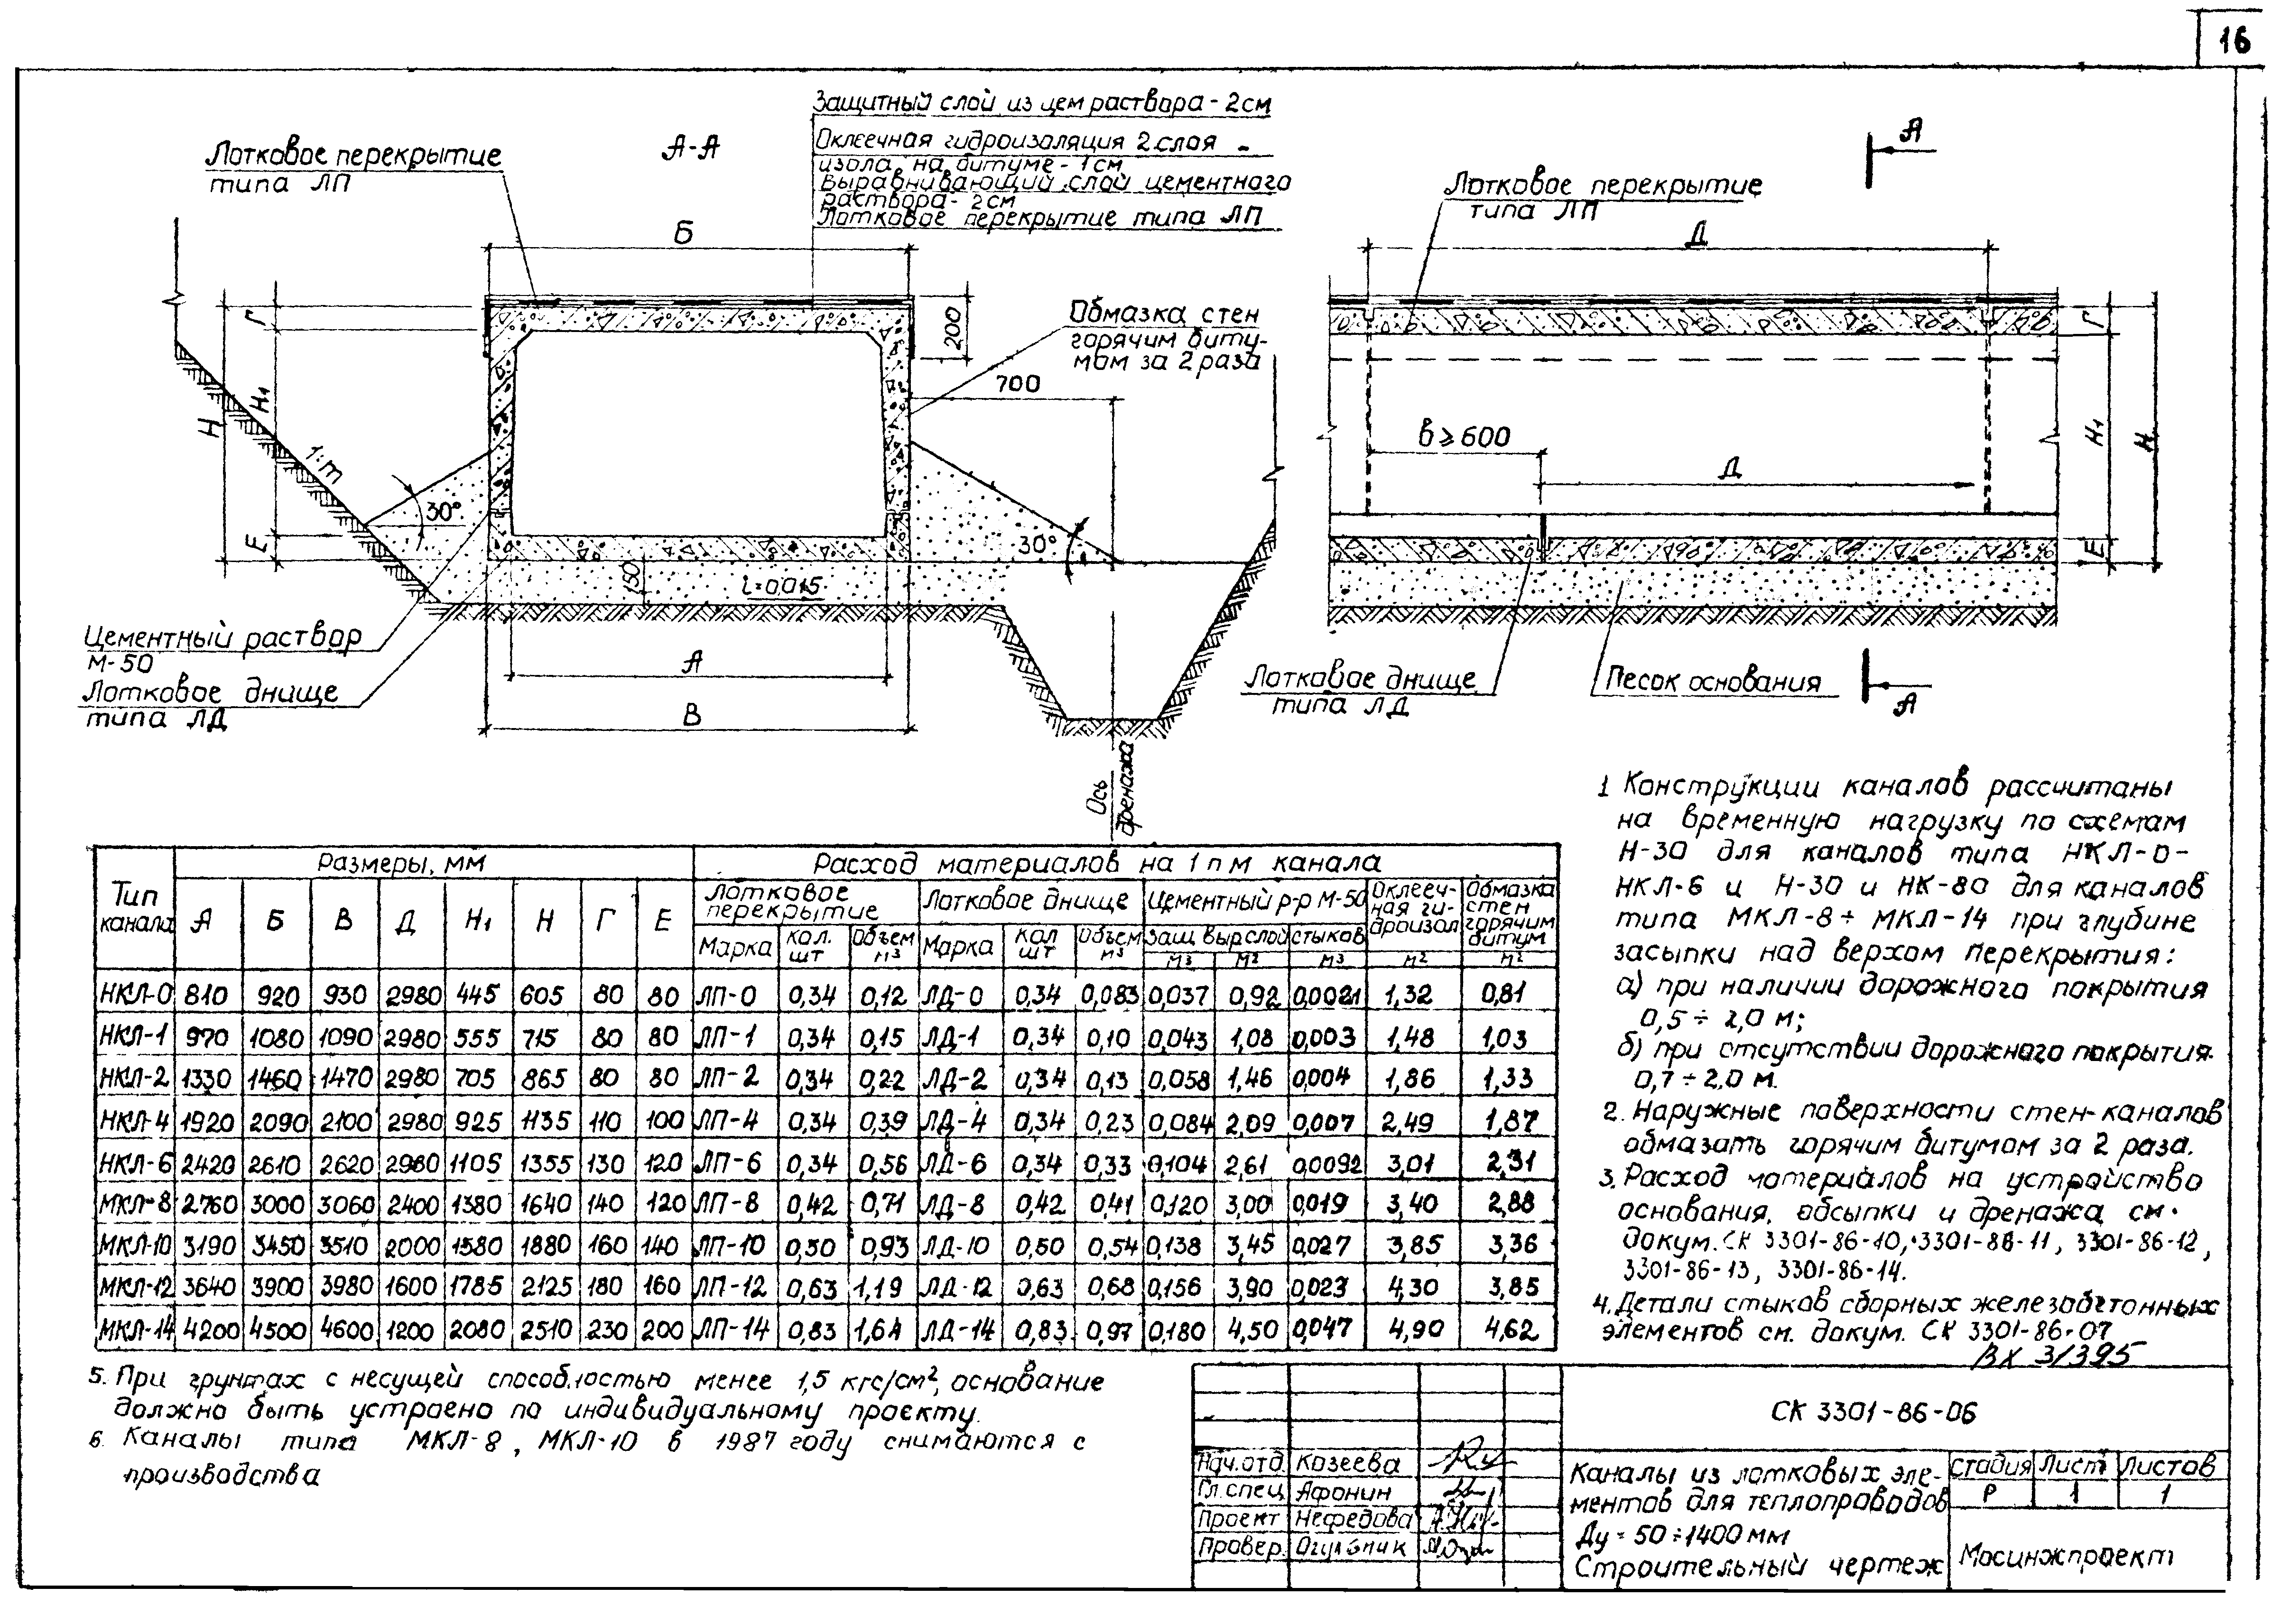 16
Защитный слой из цем раствора - 2см
Оклеечная гидроизоляция 2 слоя -
изола на битуме - 1см
Выравнивающий слой цементного
раствора - 2см
Лотковое перекрытие типа ЛП
Лотковое перекрытие
типа ЛП
А-А
Б
200
Обмазка стен
горячим биту-
мом за 2 раза
700
Г
Н1
Н
Е
1:m
30°
30°
150
i=0,015
Цементный раствор
М-50
Лотковое днище
типа ЛД
А
В
Ось
дренажа
А
Лотковое перекрытие
типа ЛП
Д
в ≥ 600
Д
Г
Н1
Н
Е
Лотковое днище
типа ЛД
Песок основания
А
Тип канала | Размеры, мм | Расход материалов на 1 п м канала
А Б В Д Н1 Н Г Е | Лотковое перекрытие | Лотковое днище | Цементный р-р М-50 | Оклееч-ная ги-дроизол | Обмазка стен горячим битум
Марка | кол. шт | Объем м3 | Марка | кол шт | Объем м3 | Защ | выр слой | стыков
м3 м2 м3 м2 м2
НКЛ-0 810 920 930 2980 445 605 80 80 ЛП-0 0,34 0,12 ЛД-0 0,34 0,083 0,037 0,92 0,0021 1,32 0,81
НКЛ-1 970 1080 1090 2980 555 715 80 80 ЛП-1 0,34 0,15 ЛД-1 0,34 0,10 0,043 1,08 0,003 1,48 1,03
НКЛ-2 1330 1460 1470 2980 705 865 80 80 ЛП-2 0,34 0,22 ЛД-2 0,34 0,13 0,058 1,46 0,004 1,86 1,33
НКЛ-4 1920 2090 2100 2980 925 1135 110 100 ЛП-4 0,34 0,39 ЛД-4 0,34 0,23 0,084 2,09 0,007 2,49 1,87
НКЛ-6 2420 2610 2620 2980 1105 1355 130 120 ЛП-6 0,34 0,56 ЛД-6 0,34 0,33 0,104 2,61 0,0092 3,01 2,31
МКЛ-8 2760 3000 3060 2400 1380 1640 140 120 ЛП-8 0,42 0,71 ЛД-8 0,42 0,41 0,120 3,00 0,019 3,40 2,88
МКЛ-10 3190 3450 3510 2000 1580 1880 160 140 ЛП-10 0,50 0,93 ЛД-10 0,50 0,54 0,138 3,45 0,027 3,85 3,36
МКЛ-12 3640 3900 3980 1600 1785 2125 180 160 ЛП-12 0,63 1,19 ЛД-12 0,63 0,68 0,156 3,90 0,023 4,30 3,85
МКЛ-14 4200 4500 4600 1200 2080 2510 230 200 ЛП-14 0,83 1,64 ЛД-14 0,83 0,97 0,180 4,50 0,047 4,90 4,62
1 Конструкции каналов рассчитаны
на временную нагрузку по схемам
Н-30 для каналов типа НКЛ-0-
НКЛ-6 и Н-30 и НК-80 для каналов
типа МКЛ-8 ÷ МКЛ-14 при глубине
засыпки над верхом перекрытия:
а) при наличии дорожного покрытия
0,5 ÷ 2,0 м;
б) при отсутствии дорожного покрытия
0,7 ÷ 2,0 м.
2. Наружные поверхности стен каналов
обмазать горячим битумом за 2 раза.
3. Расход материалов на устройство
основания, обсыпки и дренажа см.
докум. СК 3301-86-10, 3301-86-11, 3301-86-12,
3301-86-13, 3301-86-14.
4. Детали стыков сборных железобетонных
элементов см. докум. СК 3301-86-07
ВХ 3/395
5. При грунтах с несущей способностью менее 1,5 кгс/см2, основание
должно быть устроено по индивидуальному проекту.
6. Каналы типа МКЛ-8, МКЛ-10 в 1987 году снимаются с
производства
СК 3301-86-06
Нач.отд. Козеева
Гл.спец. Афонин
Проект Нефедова
Провер. Огульник
Каналы из лотковых эле-
ментов для теплопроводов
Ду = 50 ÷ 1400 мм
Строительный чертеж
стадия Лист Листов
Р 1 1
Мосинжпроект